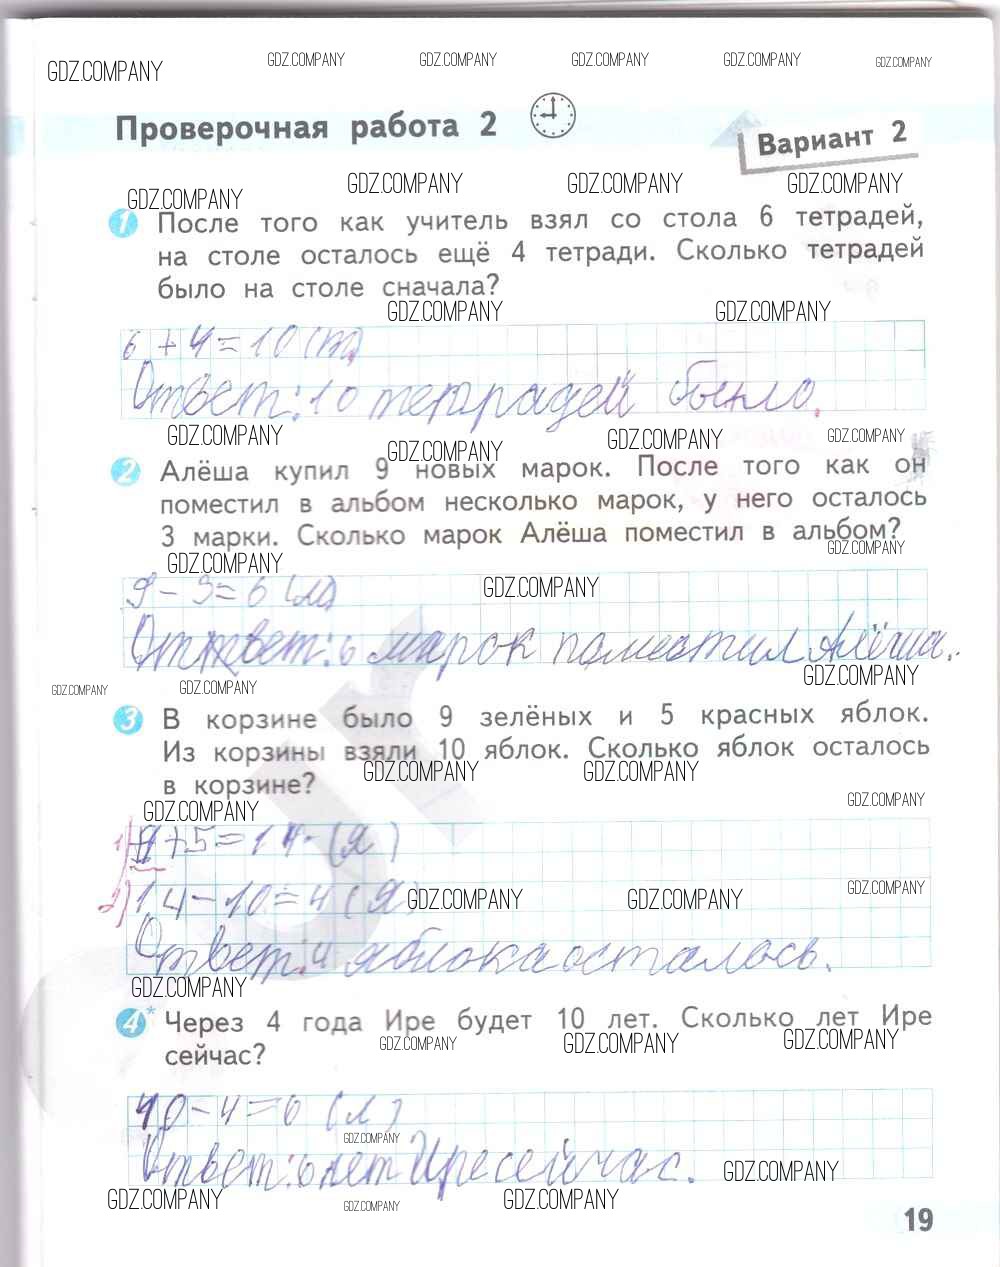 GDZ.COMPANY GDZ.COMPANY GDZ.COMPANY GDZ.COMPANY GDZ.COMPANY GDZ.COMPANY
Проверочная работа 2
Вариант 2
GDZ.COMPANY GDZ.COMPANY GDZ.COMPANY GDZ.COMPANY
1 После того как учитель взял со стола 6 тетрадей,
на столе осталось ещё 4 тетради. Сколько тетрадей
было на столе сначала?
GDZ.COMPANY GDZ.COMPANY
6+4=10(т)
Ответ:10 тетрадей было.
GDZ.COMPANY GDZ.COMPANY GDZ.COMPANY GDZ.COMPANY
2 Алёша купил 9 новых марок. После того как он
поместил в альбом несколько марок, у него осталось
3 марки. Сколько марок Алёша поместил в альбом?
GDZ.COMPANY GDZ.COMPANY GDZ.COMPANY
9-3=6 (м)
Ответ:6 марок поместил Алёша.
GDZ.COMPANY GDZ.COMPANY GDZ.COMPANY
3 В корзине было 9 зелёных и 5 красных яблок.
Из корзины взяли 10 яблок. Сколько яблок осталось
в корзине?
GDZ.COMPANY GDZ.COMPANY
GDZ.COMPANY GDZ.COMPANY
1) 9+5=14-(я)
2) 14-10=4(я)
GDZ.COMPANY GDZ.COMPANY GDZ.COMPANY
Ответ:4 яблока осталось.
GDZ.COMPANY
4* Через 4 года Ире будет 10 лет. Сколько лет Ире
сейчас?
GDZ.COMPANY GDZ.COMPANY GDZ.COMPANY
10-4=6 (л)
GDZ.COMPANY
Ответ:6 лет Ире сейчас.
GDZ.COMPANY
GDZ.COMPANY GDZ.COMPANY GDZ.COMPANY
19